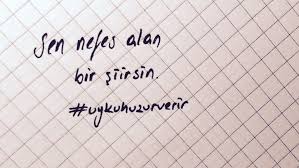 Sen nefes alan
bir şiirsin.
#uykuhuzurverir